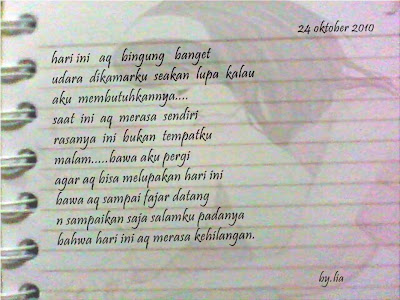 24 oktober 2010
hari ini aq bingung banget
udara dikamarku seakan lupa kalau
aku membutuhkannya....
saat ini aq merasa sendiri
rasanya ini bukan tempatku
malam.....bawa aku pergi
agar aq bisa melupakan hari ini
bawa aq sampai fajar datang
n sampaikan saja salamku padanya
bahwa hari ini aq merasa kehilangan.
by.lia